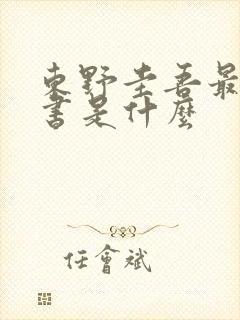 東野圭吾最
書是什麼
任會斌